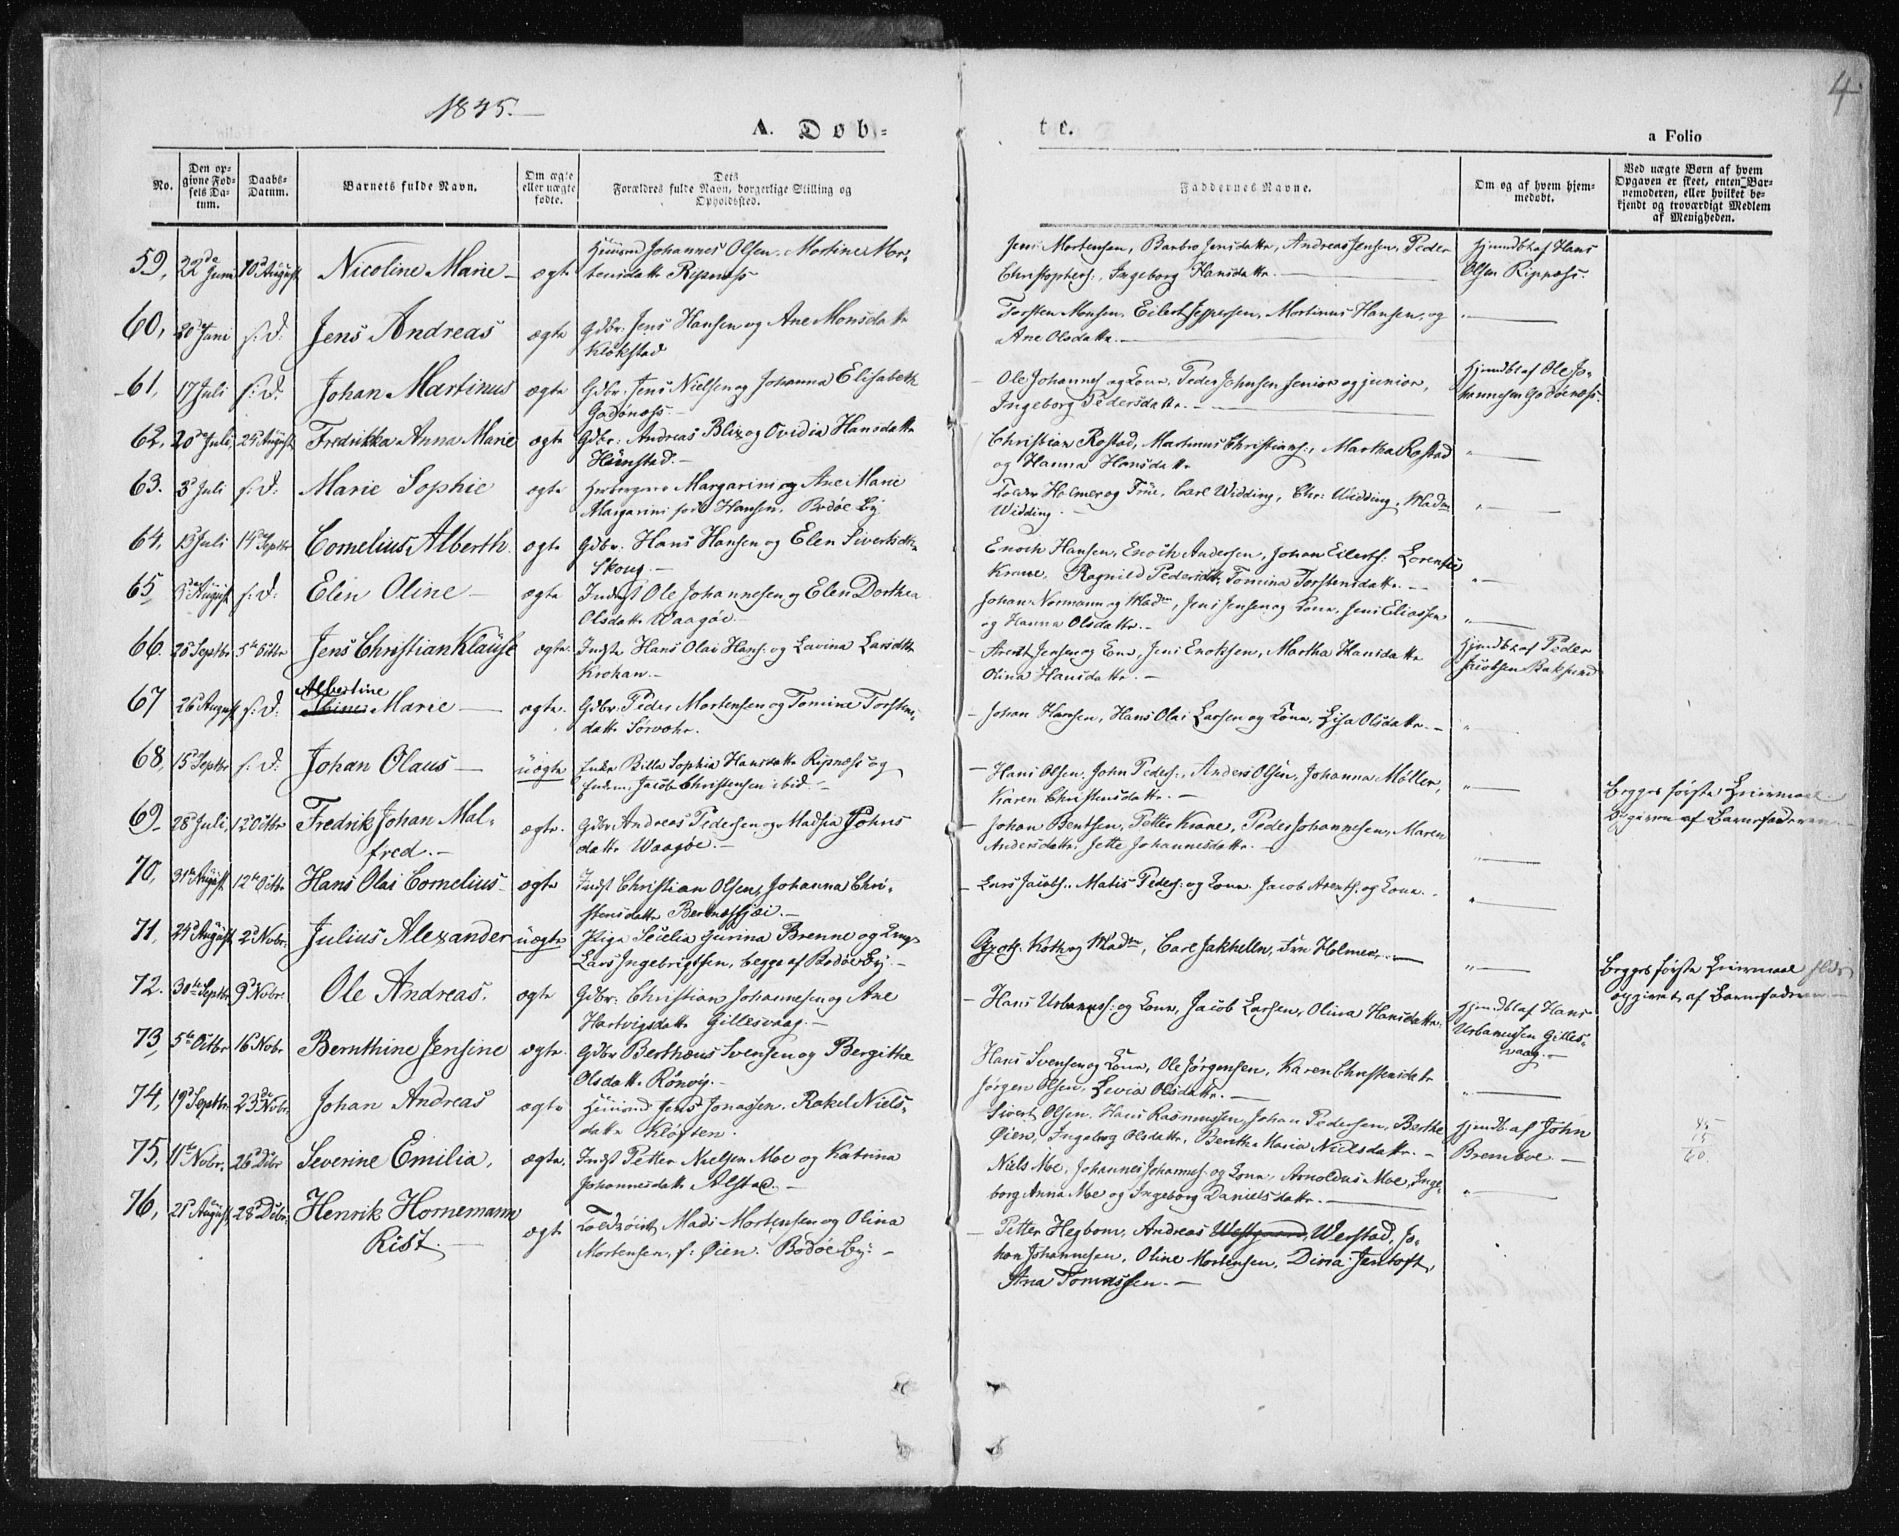 4
1845.
A. Döb=
te.
a Folio
No.
Den op=
givne Fød=
sels Da=
tum.
Daabs=
Datum.
Barnets fulde Navn.
Om ægte
eller uægte
fødte.
Dets
Forældres fulde Navn, borgerlige Stilling og
Opholdssted.
Faddernes Navne.
Om og af hvem hjem=
medøbt.
Ved uægte Børn af hvem
Opgaven er skeet, enten Bar=
nemoderen, eller hvilket be=
kjendt og troværdigt Medlem
af Menigheden.
59, 22 Juni 10 August Nicoline Marie ægte Johannes Olsen. Martine Mor=
tensdatter Ripnæss
Jens Mortensen, Barbro Jensdatter, Andreas Jensen, Peder
Christophers: Ingeborg Hansdatter.
Hjemdbt af Hans
Olsen Ripnæss.
60, 20 Juni s: d: Jens Andreas ægte Gdbr. Jens Hansen og Ane Monsdatter
Kløkstad
Torsten Monsen, Eilert Jeppesen, Martinus Hansen, og
Ane Olsdatter.
61, 17 Juli s: d: Johan Martinus ægte Gdbr. Jens Nielsen og Johanna Elisabeth
Godønæss
Ole Johannes og Kone, Peder Johnsen senior og junior,
Ingeborg Pedersdatter.
Hjemdbt af Ole Jo=
hannesen Godønæss.
62, 20 Juli, 24 August Fredrikka Anna Marie ægte Gdbr: Andreas Blix og Ovidia Hansdatter
Hunstad.
Christian Rostad, Martinus Christians:, Martha Rostad
og Hanna Hansdatter
63. 3 Juli s: d: Marie Sophie ægte Margarini og Ane Marie
Margarini født Hansen, Bodøe By
Holmer og Frue, Carl Widding, Chr: Widding, Madm
Widding.
64, 13 Juli 14 Septbr Cornelius Alberth. ægte Gdbr. Hans Hansen og Elen Sivertsdtr.
Skoug.
Enoch Hansen, Enoch Andersen, Johan Eilerts: Lorentse
Krane, Ragnild Pedersdtr, Tomina Torstensdatter.
65 August s: d: Elen Oline ægte Indst Ole Johannesen og Elen Dorthea
Olsdatter Waagøe
Johan Normann og Madm, Jens Jensen og Kone, Jens Eliassen
og Hanna Olsdatter.
66. Septbr 5te Octbr Jens Christian Klause ægte. Indst Hans Olai Hans: og Lavina Larsdtr
Krokan.
Arent Jensen og Kone, Jens Enoksen, Martha Hansdatter
Olina Hansdatter.
Hjemdbt af Peder
Jacobsen
67 26 August s: d: Albertine
Marie ægte. Gdbr. Peder Mortensen og Tomine Torstens=
datter Sørvohr.
Johan Hansen, Hans Olai Larsen og Kone, Lisa Olsdatter.
68, 15 Septbr s: d: Johan Olaus uægte Enke Sophia Hansdatter Ripnæss og
Enkem. Jacob Christensen ibid.
Hans Olsen, John Peders:, Anders Olsen, Johanna Møller,
Karen Christensdatter.
Begges første Leiermaal
af Barnefaderen
69. 28 Juli, 12 Octbr Fredrik Johan Mal=
fred. ægte. Gdbr Andreas Pedersen og Madsia Johns
datter Waagøe.
Johan Bentsen, Petter Krane, Peder Johannesen, Maren
Andersdatter, Jette Johannesdatter.
70, 31 August 12te Octbr Hans Olai Cornelius ægte Indst Christian Olsen, Johanna Chri=
stensdatter
Lars Jacobs:, Matis Peders: og Kone. Jacob Arents. og Kone.
71, 24 August 2 Novbr. Julius Alexander uægte Pige Secelia Jurina Brenne og
Lars Ingebrigtsen, begge af Bodøe By.
Koch og Madm, Carl Jakhelln, Fru Holmer.
Begges første Leiermaal
opgivet af Barnefaderen
72. 30te Septbr 9 Novbr. Ole Andreas. ægte Gdbr: Christian Johannesen og Ane
Hartvigsdatter Gillesvaag.
Hans Urbanuss: og Kone, Jacob Larsen, Olina Hansdatter.
Hjemdbt af Hans
Urbanussen Gilles=
vaag.
73, 5te Octbr 16 Novbr Bernthine Jensine ægte. Gdbr Berthæus Svensen og Bergithe
Olsdatter Rønvig.
Hans Svensen og Kone, Ole Jørgensen, Karen Christensdatr
Jørgen Olsen, Levia Olsdatter.
74, 19 Septbr. 23 Novbr. Johan Andreas ægte Jens Jonassen, Rakel Niels=
datter Kløften.
Sivert Olsen, Hans Rasmussen, Johan Pedersen, Berthe
Øien, Ingeborg Olsdatter, Benthe Maria Nielsdatter.
Hjemdb. af John
Bremboe
75, 11te Novbr. 26 Dcbr Severine Emilia, ægte. Indst Petter Nielsen Moe og Katrina
Johannesdatter Alstad.
Niels Moe, Johannes Johannes: og Kone, Arnoldus Moe, Inge=
borg Anna Moe og Ingeborg Danielsdatter.
76, 21 August 28 Dcbr, Henrik Hornemann
Rist. ægte Mads Mortensen og Olina
Mortensen, f: Øien. Bodøe By:
Petter Hegbom, Andreas Westgaard, Werstad, Jo=
han Johannesen, Oline Mortensen, Dina Jentoft,
Ana Tomassen.